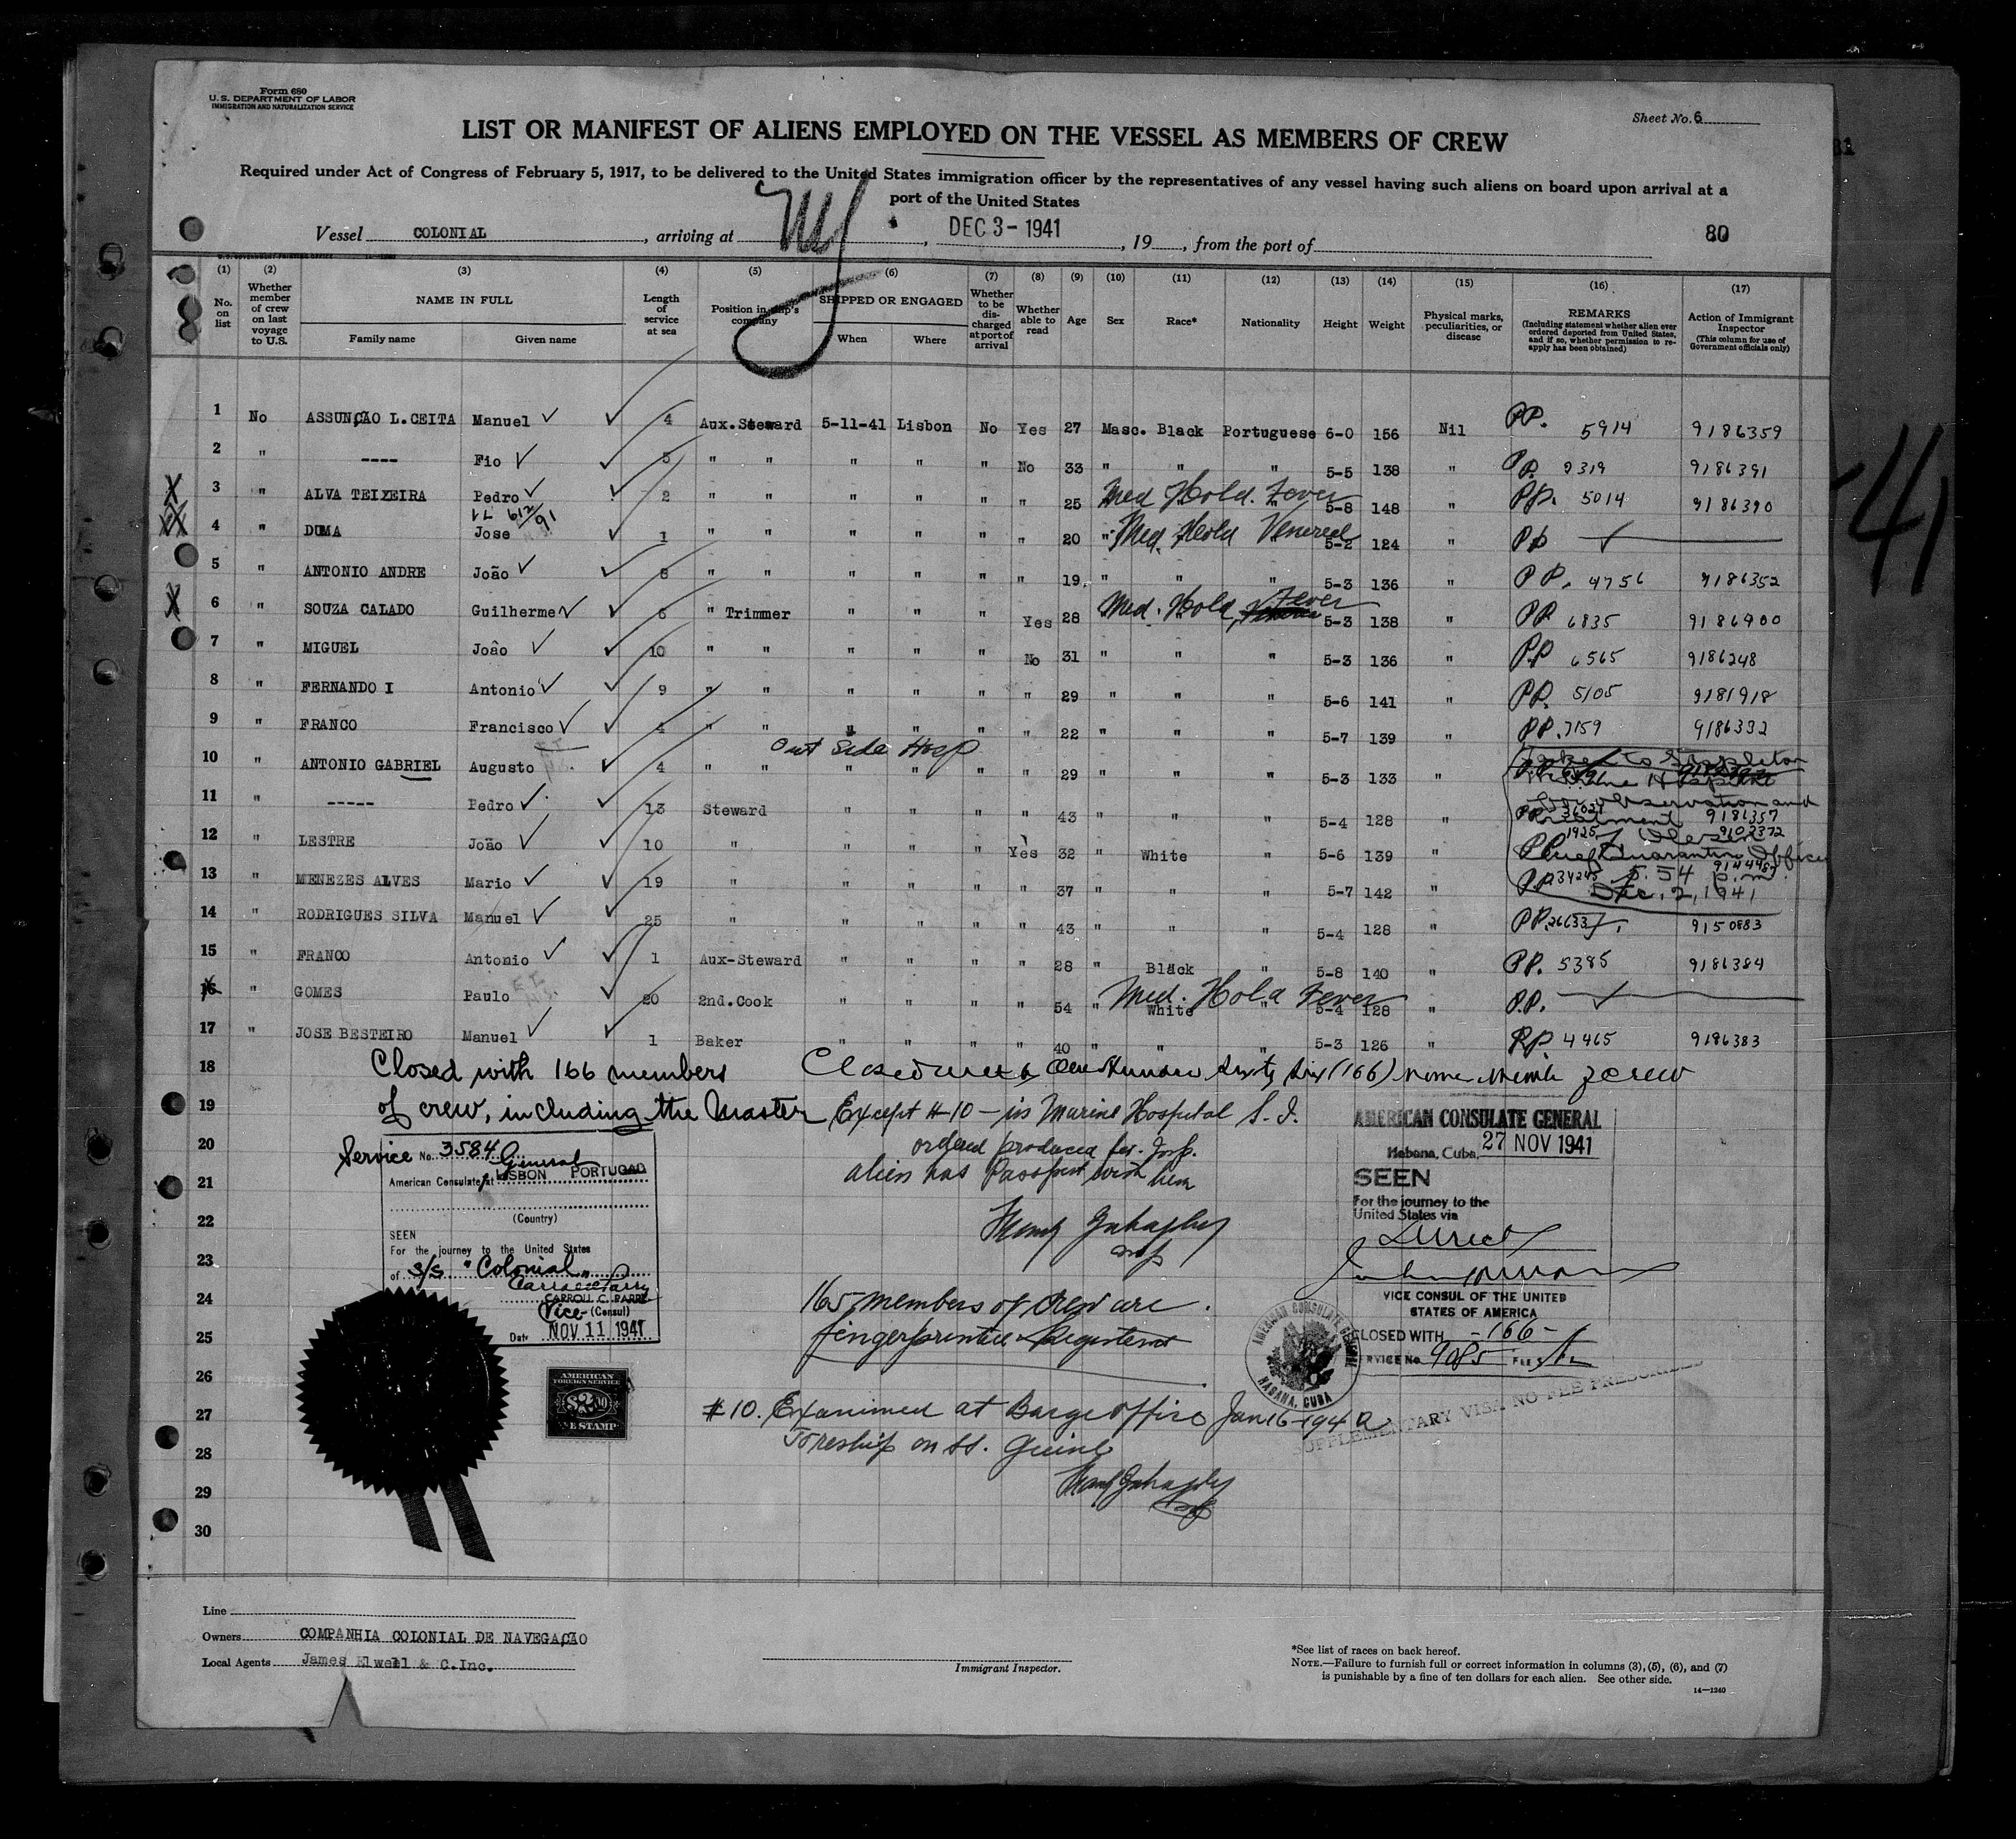 Form 680
U. S. DEPARTMENT OF LABOR
IMMIGRATION AND NATURALIZATION SERVICE
Sheet No. 6
LIST OR MANIFEST OF ALIENS EMPLOYED ON THE VESSEL AS MEMBERS OF CREW
Required under Act of Congress of February 5, 1917, to be delivered to the United States immigration officer by the representatives of any vessel having such aliens on board upon arrival at a
port of the United States
Vessel COLONIAL, arriving at NY, DEC 3 - 1941, 19, from the port of
80
31
41
(1) No. on list
(2) Whether member of crew on last voyage to U.S.
(3) NAME IN FULL Family name Given name
(4) Length of service at sea
(5) Position in ship's company
(6) SHIPPED OR ENGAGED When Where
(7) Whether to be discharged at port of arrival
(8) Whether able to read
(9) Age
(10) Sex
(11) Race*
(12) Nationality
(13) Height
(14) Weight
(15) Physical marks, peculiarities, or disease
(16) REMARKS (Including statement whether alien ever ordered deported from United States, and if so, whether permission to reapply has been obtained)
(17) Action of Immigrant Inspector (This column for use of Government officials only)
1 No ASSUNÇÃO L.CEITA Manuel 4 Aux.Steward 5-11-41 Lisbon No Yes 27 Masc. Black Portuguese 6-0 156 Nil PP. 5914 9186359
2 " ---- Fio 5 " " " " " No 33 " " " 5-5 138 " PP. 9186391
3 " ALVA TEIXEIRA Pedro 2 " " " " " " 25 Med Hold. Fever 5-8 148 " PP. 5014 9186390
4 " DUMA Jose 1 " " " " " " 20 " Med. Hold Venereal 5-2 124 " PP
5 " ANTONIO ANDRE João 8 " " " " " " 19 " " " 5-3 136 " PP. 4756 9186352
6 " SOUZA CALADO Guilherme 6 " Trimmer " " " Yes 28 Med. Hold, Fever 5-3 138 " PP 6835 9186900
7 " MIGUEL João 10 " " " " " No 31 " " " 5-3 136 " PP 6565 9186248
8 " FERNANDO I Antonio 9 " " " " " " 29 " " " 5-6 141 " PP. 5105 9181918
9 " FRANCO Francisco 4 " " " " " " 22 " " " 5-7 139 " PP. 7159 9186332
Out Side Hosp
10 " ANTONIO GABRIEL Augusto 4 " " " " " " 29 " " " 5-3 133 " PP
Taken to Stapleton
Marine Hospital
for observation and
treatment
Chief Quarantine Officer
5:54 p.m.
Dec. 2, 1941
11 " ----- Pedro 13 Steward " " " " 43 " " " 5-4 128 " PP 9186357
12 " LESTRE João 10 " " " " Yes 32 " White " 5-6 139 " PP 1925
13 " MENEZES ALVES Mario 19 " " " " " 37 " " " 5-7 142 " PP 34245
14 " RODRIGUES SILVA Manuel 25 " " " " " 43 " " " 5-4 128 " PP. 9150883
15 " FRANCO Antonio 1 Aux-Steward " " " " 28 " Black " 5-8 140 " PP. 5385 9186384
16 " GOMES Paulo 20 2nd.Cook " " " " 54 " White Med. Hold Fever 5-4 128 " P.P.
17 " JOSE BESTEIRO Manuel 1 Baker " " " " 40 " " " 5-3 126 " PP. 4465 9186383
18 Closed with 166 members
19 of crew, including the Master
Closed with One Hundred Sixty Six (166) crew
Except #10 - in Marine Hospital S. I.
ordered produced for Insp.
alien has Passport with him
Insp
20
21
22
23
24
25
26
27
28
29
30
Service No. 3584
American Consulate General at LISBON PORTUGAL
(Country)
SEEN
For the journey to the United States
of s/s "Colonial"
CARROLL C. PARRY
Vice-(Consul)
Date NOV 11 1941
AMERICAN
FOREIGN SERVICE
$2.00
FEE STAMP
165 members of crew are
fingerprinted & Registered
#10. Examined at Barge Office Jan 16-1942
To reship on SS. Guine
AMERICAN CONSULATE GENERAL
Habana, Cuba, 27 NOV 1941
SEEN
For the journey to the
United States via
Direct
VICE CONSUL OF THE UNITED
STATES OF AMERICA
CLOSED WITH -166-
SERVICE No. 9085 FEE $
AMERICAN CONSULATE GENERAL
HABANA, CUBA
SUPPLEMENTARY VISA NO FEE PRESCRIBED
Line
Owners COMPANHIA COLONIAL DE NAVEGAÇÃO
Local Agents James Elwell & C.Inc.
Immigrant Inspector.
*See list of races on back hereof.
NOTE.—Failure to furnish full or correct information in columns (3), (5), (6), and (7)
is punishable by a fine of ten dollars for each alien. See other side.
14—1240